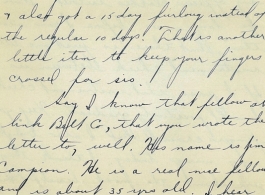 I also got a 15 day furlong instead of
the regular 10 days. That's another
little item to keep your fingers
crossed for sis.
Say I know that fellow at
link Belt Co, that you wrote the
letter to, well. His name is Jim
Campion. He is a real nice fellow
and is about 35 yrs old. I hear